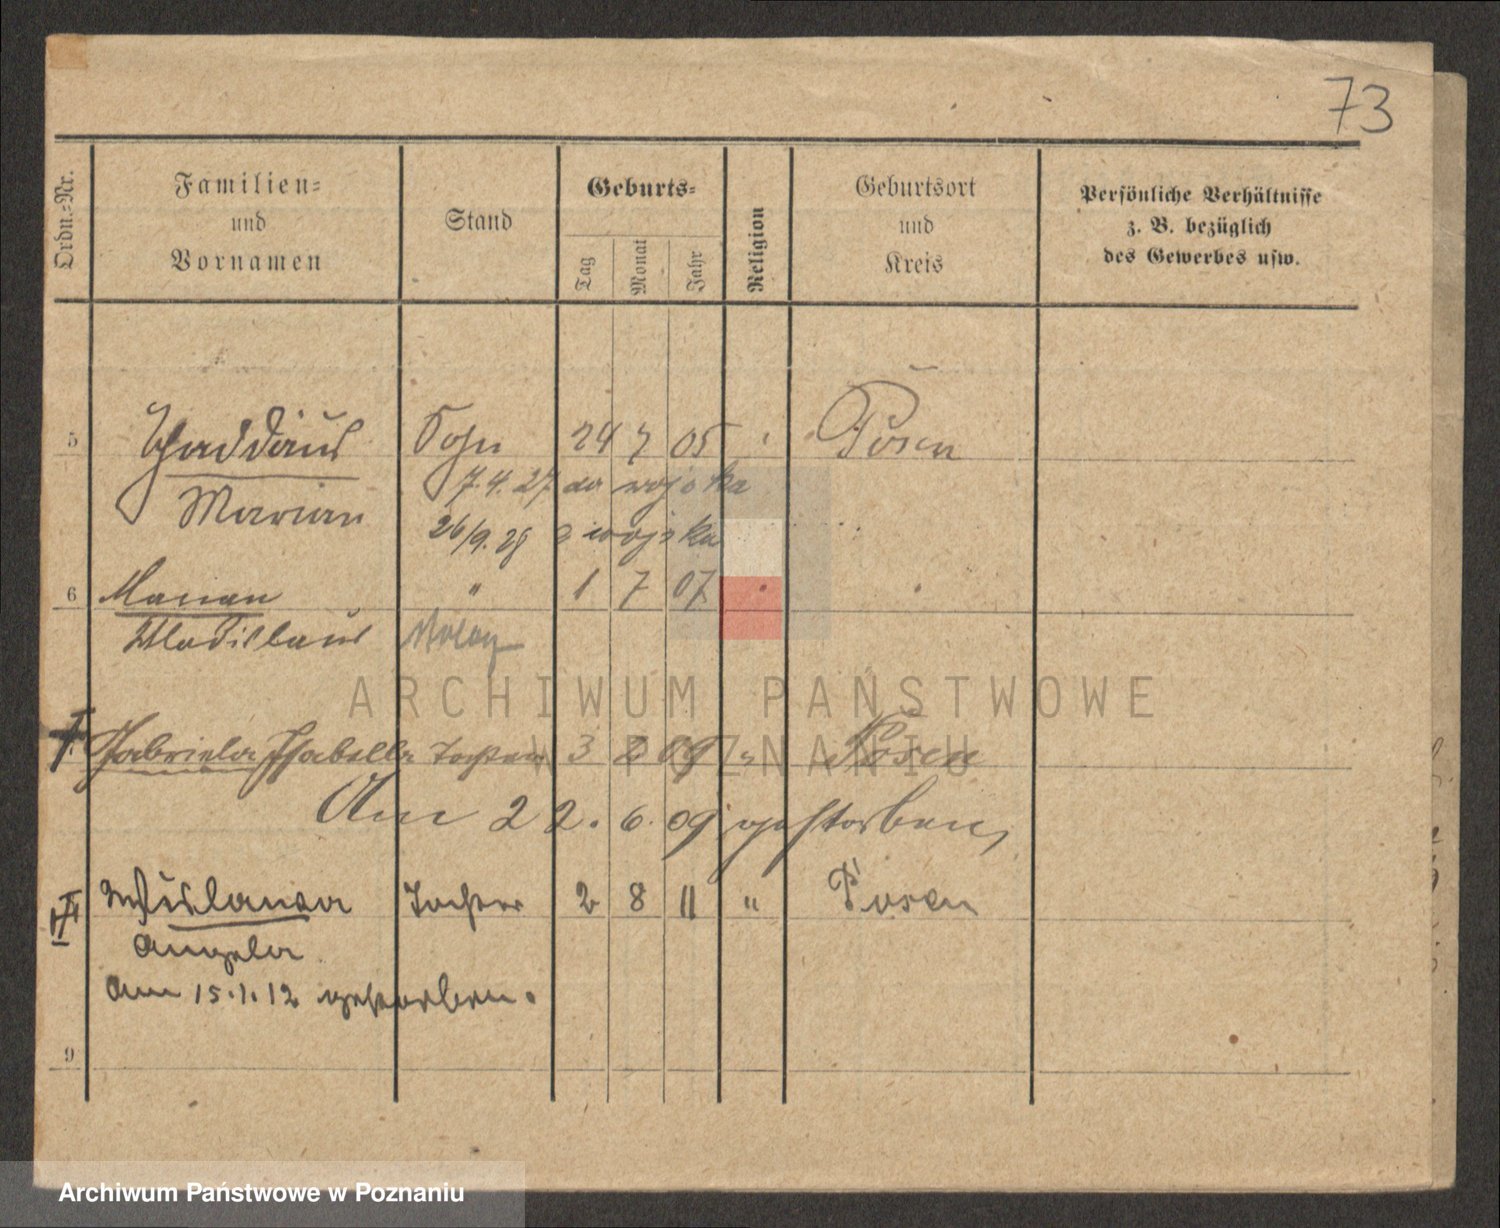 73
Ordn.-Nr.
Familien- und Vornamen
Stand
Geburts-
Tag
Monat
Jahr
Religion
Geburtsort und Kreis
Persönliche Verhältnisse z. B. bezüglich des Gewerbes usw.
5 Thaddäus Sohn 24 7 05 Posen
7.4.27 do wojska
Marian
26/9.28 z wojska
6 Marian " 1 7 07
Wladislaus
Gabriela Isabella Tochter 3 2 09 " Posen
Am 22. 6. 09 gestorben,
Tochter 2 8 11 " Posen
Angela
am 15.1.12 gestorben.
9
ARCHIWUM PAŃSTWOWE
W POZNANIU
Archiwum Państwowe w Poznaniu